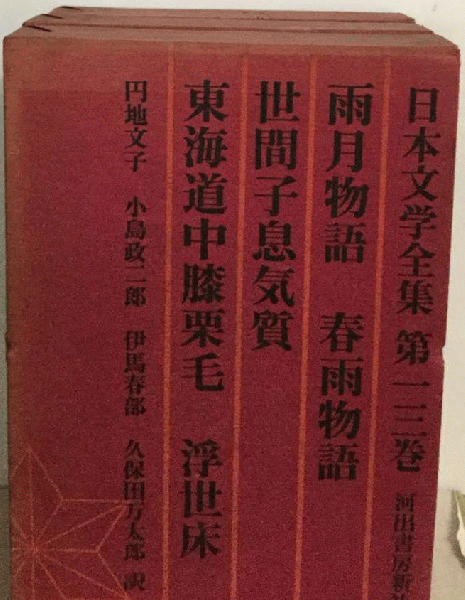 日本文学全集 第一三巻 河出書房新
雨月物語 春雨物語
世間子息気質
東海道中膝栗毛 浮世床
円地文子 小島政二郎 伊馬春部 久保田万太郎 訳